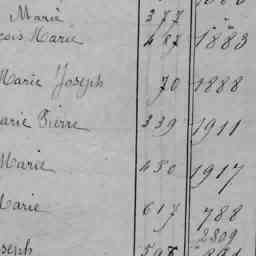 Marie 377
çois Marie 487 1883
Marie Joseph 70 1888
arie Pierre 339 1911
Marie 450 1917
Marie 617 788
2809
seph